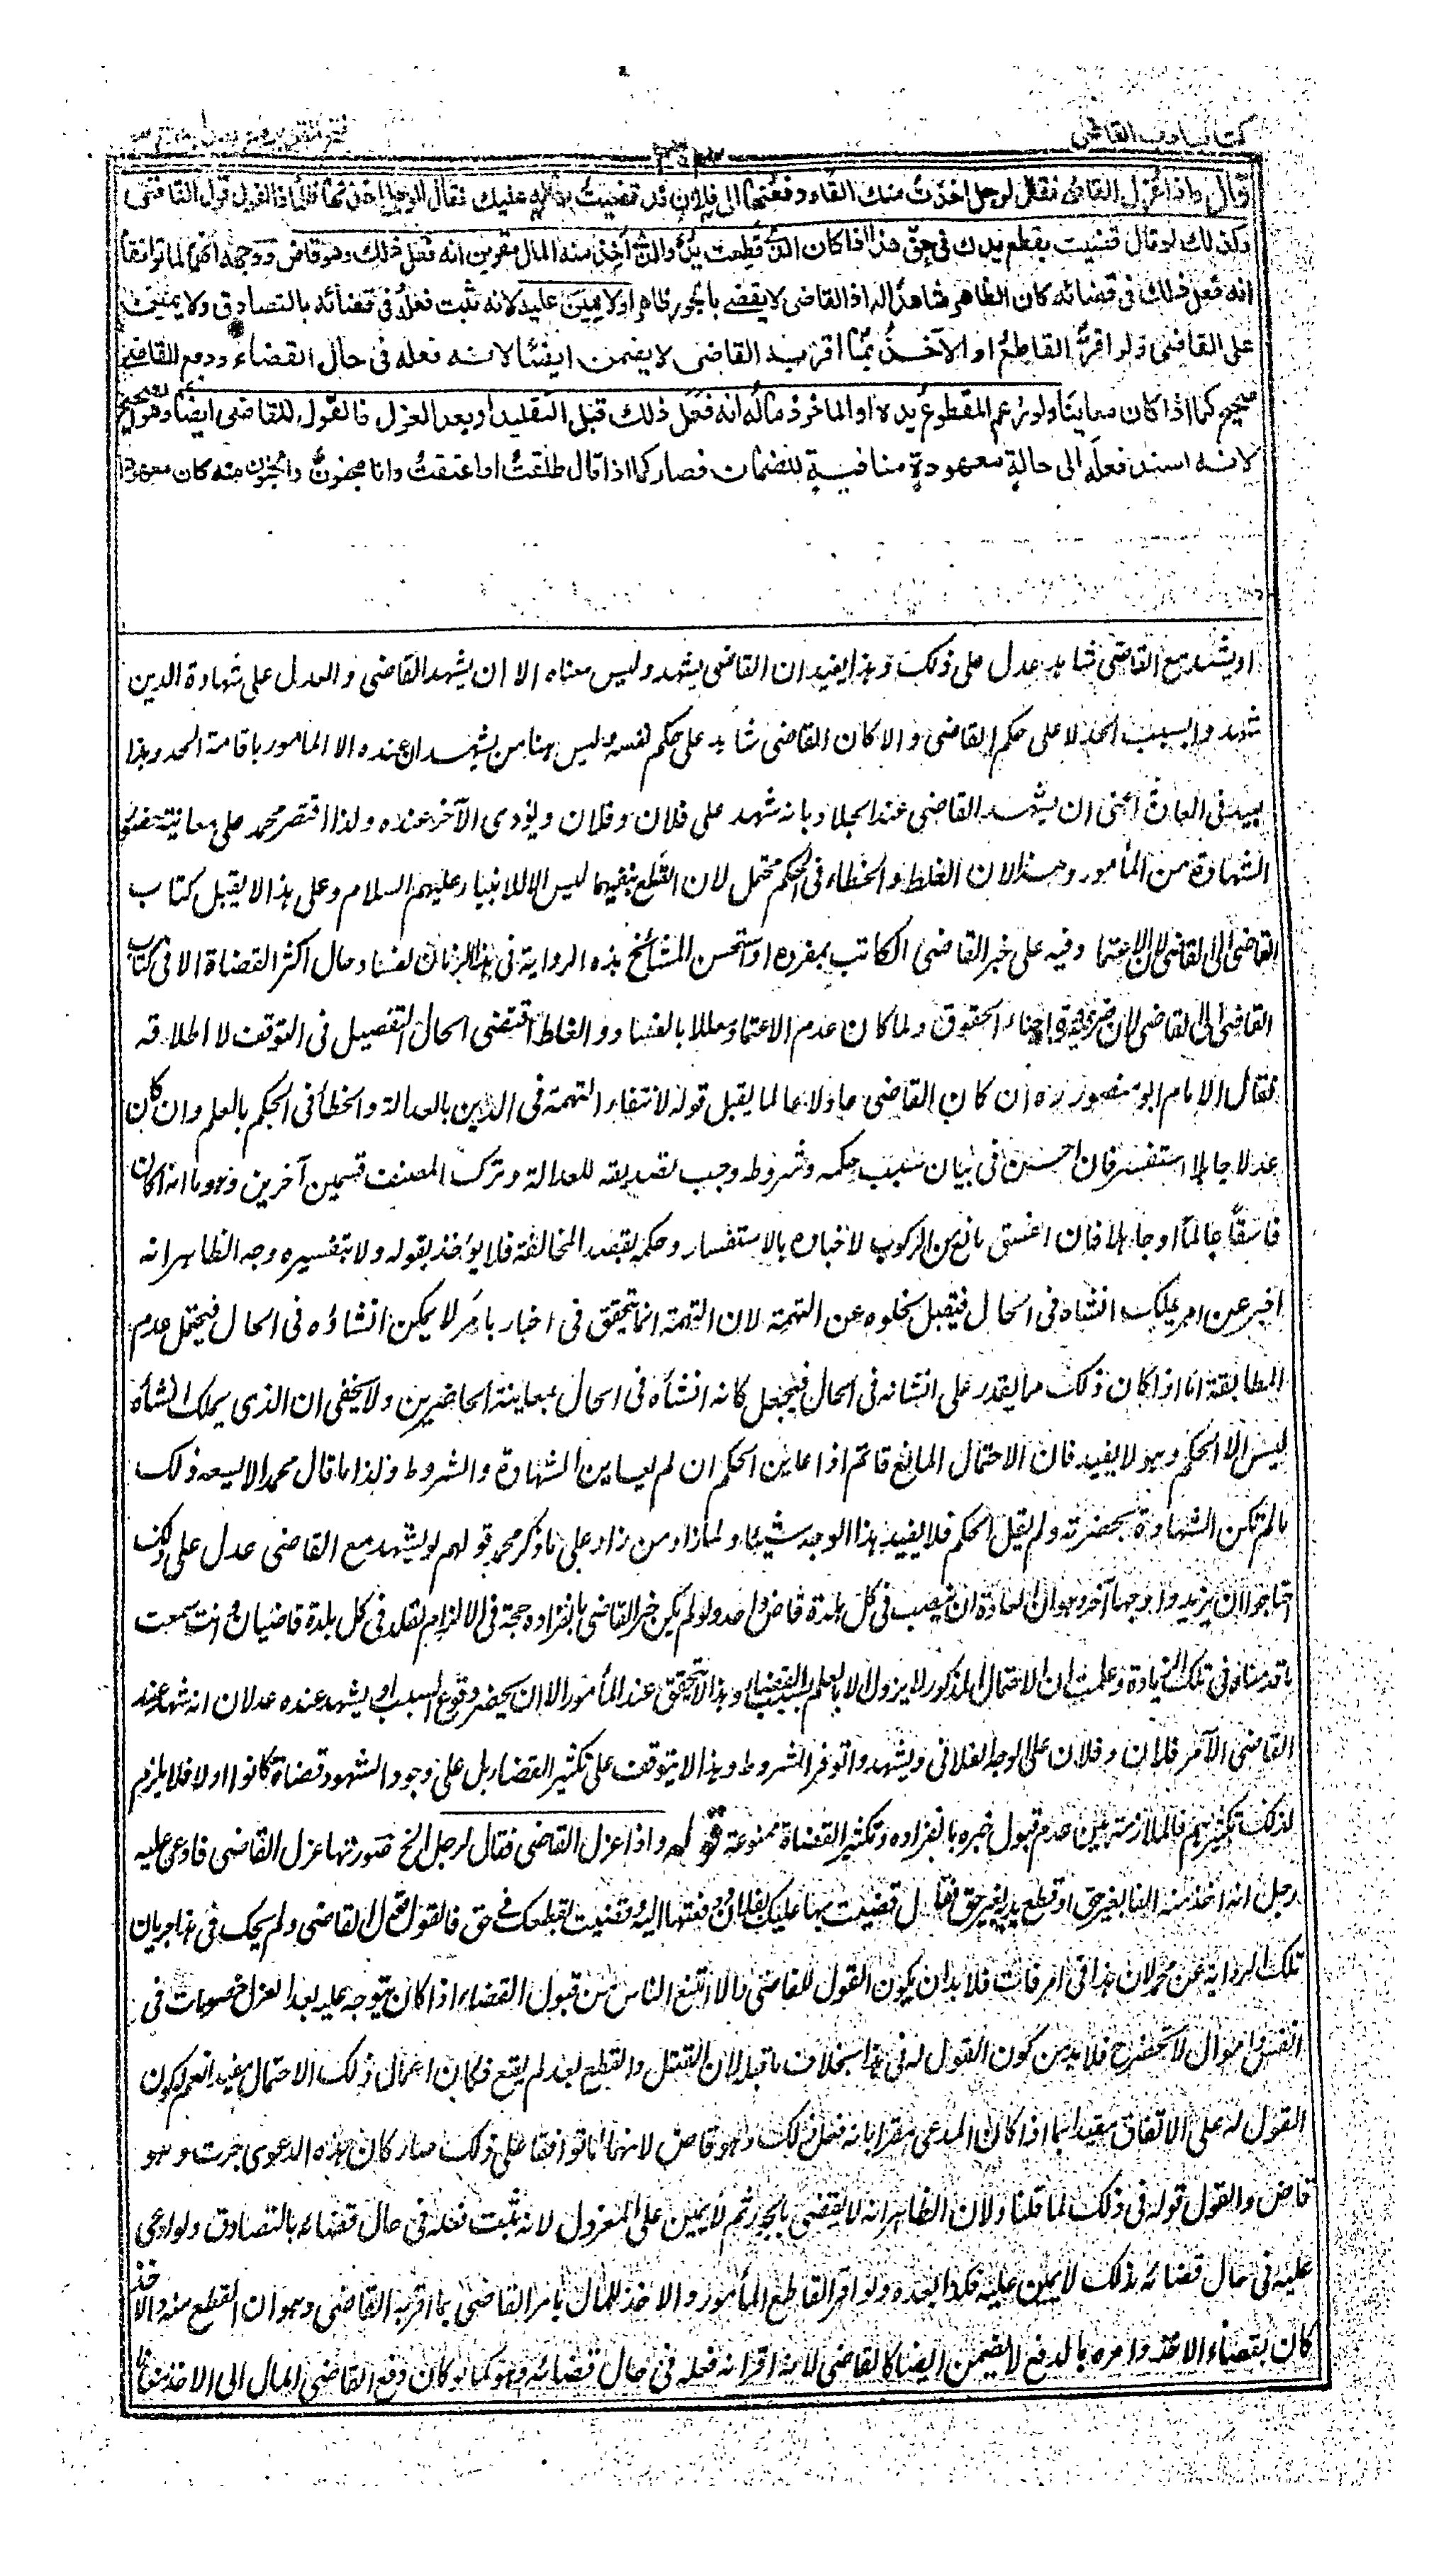 كتاب ادب القاضى
قال واذا عزل القاضى فقال لرجل اخذت منك الفا ودفعتها الى فلان قد قضيت بها له عليك فقال الرجل اخذتها ظلما فالقول قول القاضى
وكذلك لو قال قضيت بقطع يدك فى حق هذا اذا كان الذى قطعت يده والذى اخذ منه المال مقرين انه فعل ذلك وهو قاض ووجهه انهما لما توافقا
انه فعل ذلك فى قضائه كان الظاهر شاهدا له اذ القاضى لا يقضى بالجور ظاهرا ولا يمين عليه لانه ثبت فعله فى قضائه بالتصادق ولا يمين
على القاضى ولو اقر القاطع او الآخذ بما اقر به القاضى لا يضمن ايضا لانه فعله فى حال القضاء ودفع القاضى
صحيح كما اذا كان معاينا ولو زعم المقطوع يده او الماخوذ ماله انه فعل ذلك قبل التقليد او بعد العزل فالقول للقاضى ايضا وهو الصحيح
لانه اسند فعله الى حالة معهودة منافية للضمان فصار كما اذا قال طلقت او اعتقت وانا مجنون والجنون منه كان معهودا
او يشهد مع القاضى شاهد عدل على ذلك وهذا يفيد ان القاضى يشهد وليس معناه الا ان يشهد القاضى والعدل على شهادة الذين
شهدوا بسبب الحد لا على حكم القاضى والا كان القاضى شاهدا على حكم نفسه وليس هنا من يشهدان عنده الا المامور باقامة الحد وهذا
بعيد فى العادة اعنى ان يشهد القاضى عند الجلاد بانه شهد على فلان وفلان ويؤدى الآخر عنده ولذا اقتصر محمد على معاينة
الشهادة من المأمور وهذا لان الغلط والخطاء فى الحكم محتمل لان القطع بنفيهما ليس الا للانبياء عليهم السلام وعلى هذا لا يقبل كتاب
القاضى الى القاضى لان الاعتماد فيه على خبر القاضى الكاتب بمفرده واستحسن المشائخ هذه الرواية فى هذا الزمان لفساد حال اكثر القضاة الا فى كتاب
القاضى الى القاضى لان ضرورة احياء الحقوق ولما كان عدم الاعتماد معللا بالفساد والغلط اقتضى الحال التفصيل فى التوقف لا اطلاقه
فقال الامام ابو منصور ره ان كان القاضى عادلا عالما يقبل قوله لانتفاء التهمة فى الدين بالعدالة والخطأ فى الحكم بالعلم وان كان
عدلا جاهلا استفسر فان احسن فى بيان سبب حكمه وشروطه وجب تصديقه للعدالة وترك المصنف قسمين آخرين وهو ما اذا كان
فاسقا عالما او جاهلا فان الفسق مانع من الركوب لاخباره بالاستفسار وحكمه بقصد المخالفة فلا يؤخذ بقوله ولا بتفسيره وجه الظاهر انه
اخبر عن امر يملك انشاءه فى الحال فيقبل لخلوه عن التهمة لان التهمة انما تتحقق فى اخبار بامر لا يمكن انشاؤه فى الحال فيحتمل عدم
المطابقة اما اذا كان ذلك مما يقدر على انشائه فى الحال فيجعل كانه انشأه فى الحال بمعاينة الحاضرين ولا يخفى ان الذى يملك انشاءه
ليس الا الحكم وهو لا يفيد فان الاحتمال المانع قائم اذا عاين الحكم ان لم يعاين الشهادة والشروط ولذا ما قال محمد الا يسعه ذلك
ما لم تكن الشهادة بحضرته ولم يقل الحكم فلا يفيد هذا الوجه شيئا ولما زاد من زاد على ما ذكر محمد قولهم او يشهد مع القاضى عدل على ذلك
احتاجوا ان يزيدوا وجها آخر وهو ان العادة ان ينصب فى كل بلدة قاض واحد ولو لم يكن خبر القاضى بانفراده حجة فى الالزام لقلد فى كل بلدة قاضيان وانت سمعت
ما قدمناه فى تلك الزيادة وعلمت ان الاحتمال المذكور لا يزول الا بالعلم بسبب القضاء وهذا لا يتحقق عند المأمور الا ان يحضر وقوع السبب او يشهد عنده عدلان انه شهد عند
القاضى الآمر فلان وفلان على الوجه الفلانى ويشهدوا توفر الشروط وهذا لا يتوقف على تكثير القضاء بل على وجود الشهود قضاة كانوا او لا فلا يلزم
لذلك تكثيرهم فالملازمة بين عدم قبول خبره بانفراده وتكثير القضاة ممنوعة قوله واذا عزل القاضى فقال لرجل الخ صورتها عزل القاضى فادعى عليه
رجل انه اخذ منه الفا بغير حق او قطع يده بغير حق فقال قضيت بها عليك لفلان ودفعتها اليه وقضيت لقطعك فى حق فالقول قول القاضى ولم يحك فى هذا جريان
تلك الرواية عن محمد لان هذا فى امر فات فلا بد ان يكون القول للقاضى والا امتنع الناس من قبول القضاء اذا كان يتوجه عليه بعد العزل خصومات فى
انفس واموال لا تنحصر فلا بد من كون القول له فى هذا بخلاف ما قبله لان القتل والقطع بعد لم يقع فكان اعمال ذلك الاحتمال مفيدا نعم لكون
القول له على الاتفاق مقيد بما اذا كان المدعى مقرا بانه فعل ذلك وهو قاض لانهما لما توافقا على ذلك صار كان هذه الدعوى جرت وهو
قاض والقول قوله فى ذلك لما قلنا ولان الظاهر انه لا يقضى بالجور ثم لا يمين على المعزول لانه ثبت فعله فى حال قضائه بالتصادق ولو ادعى
عليه فى حال قضائه بذلك لا يمين عليه فكذا بعده ولو اقر القاطع المأمور والاخذ للمال بامر القاضى بما اقر به القاضى وهو ان القطع منه والاخذ
كان بقضاء الاخذ وامره بالدفع لا يضمن ايضا كالقاضى لانه اقر انه فعله فى حال قضائه وهو كما لو كان دفع القاضى المال الى الاخذ معاينا